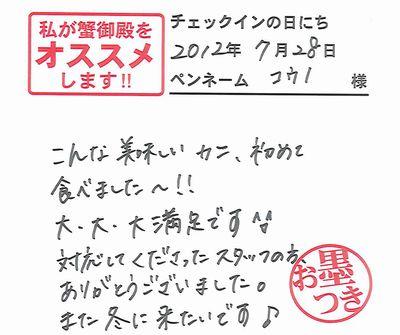 私が蟹御殿を
オススメ
します!!
チェックインの日にち
2012年 7月28日
ペンネーム コウノ 様
こんな美味しいカニ、初めて
食べました〜!!
大・大・大満足です^^
対応してくださったスタッフの方、
ありがとうございました。
また冬に来たいです♪
お墨つき